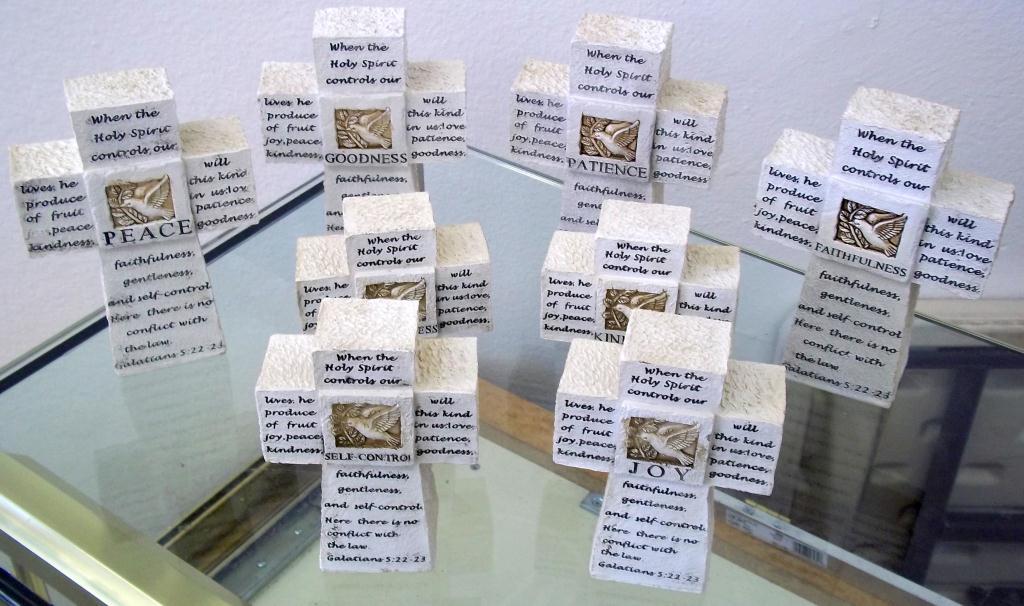 When the
Holy Spirit
controls our
lives, he
produce
of fruit
joy,peace,
kindness,
will
this kind
in us:love,
patience,
goodness,
PEACE
faithfulness,
gentleness,
and self-control.
Here there is no
conflict with
the law.
Galatians 5:22-23
When the
Holy Spirit
controls our
lives, he
produce
of fruit
joy,peace,
kindness,
will
this kind
in us:love,
patience,
goodness,
GOODNESS
faithfulness,
When the
Holy Spirit
controls our
lives, he
produce
of fruit
joy,peace,
kindness,
will
this kind
in us:love,
patience,
goodness,
PATIENCE
faithfulness,
When the
Holy Spirit
controls our
lives, he
produce
of fruit
joy,peace,
kindness,
will
this kind
in us:love,
patience,
goodness,
FAITHFULNESS
faithfulness,
gentleness,
and self-control.
Here there is no
conflict with
the law.
Galatians 5:22-23
When the
Holy Spirit
controls our
lives, he
produce
of fruit
joy,peace,
will
this kind
in us:love,
patience,
goodness,
When the
Holy Spirit
controls our
lives, he
produce
of fruit
joy,peace,
kindness,
will
this kind
When the
Holy Spirit
controls our
lives, he
produce
of fruit
joy,peace,
kindness,
will
this kind
in us:love,
patience,
goodness,
SELF-CONTROL
faithfulness,
gentleness,
and self-control.
Here there is no
conflict with
the law.
Galatians 5:22-23
When the
Holy Spirit
controls our
lives, he
produce
of fruit
joy,peace,
kindness,
will
this kind
in us:love,
patience,
goodness,
JOY
faithfulness,
gentleness,
and self-control.
Here there is no
conflict with
the law.
Galatians 5:22-23